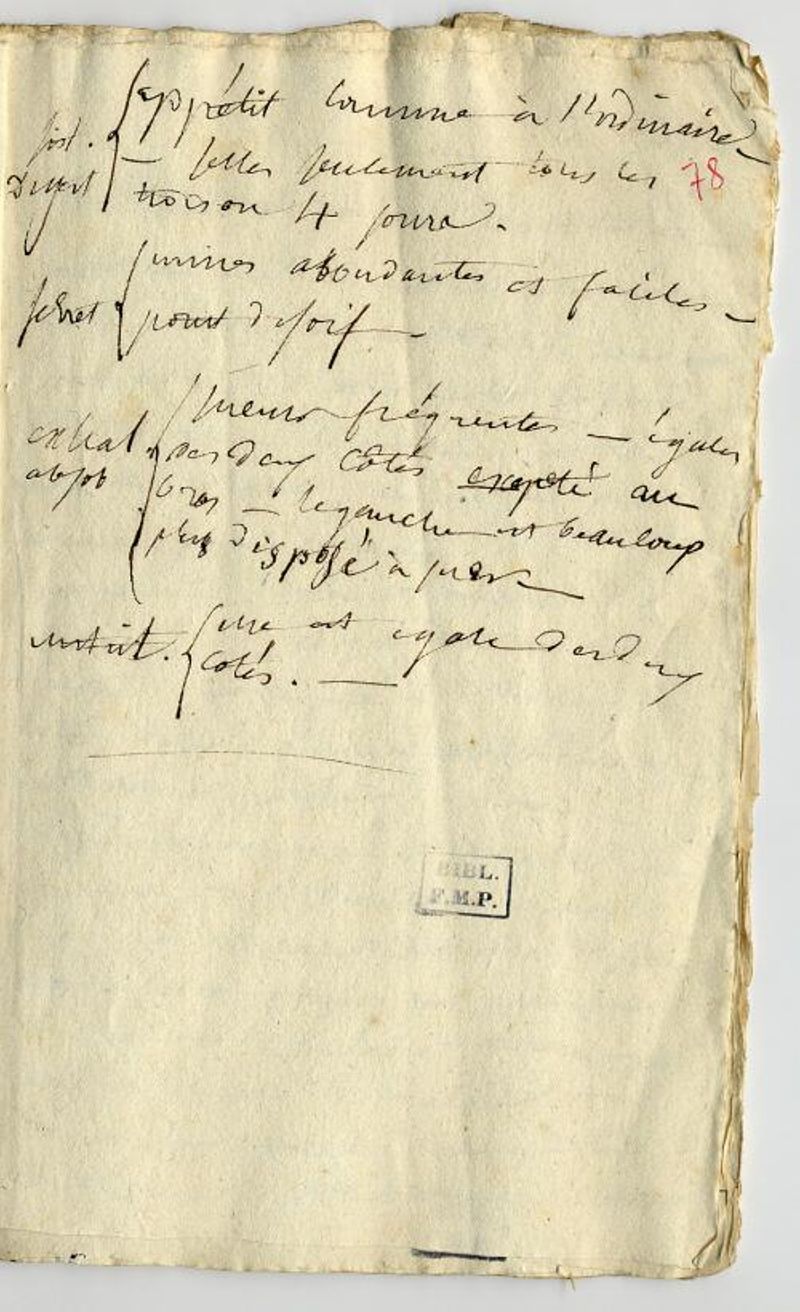 appétit comme à l'ordinaire
sist. — selles seulement tous les 78
Digest trois ou 4 jours.
urines abondantes et faciles —
secret point de soif —
sueurs fréquentes — égales
exhal. des deux côtés excepté au
absob bras — le gauche est beaucoup
plus disposé à suer —
nutrit. elle est egale des deux
cotés. —
BIBL.
F.M.P.